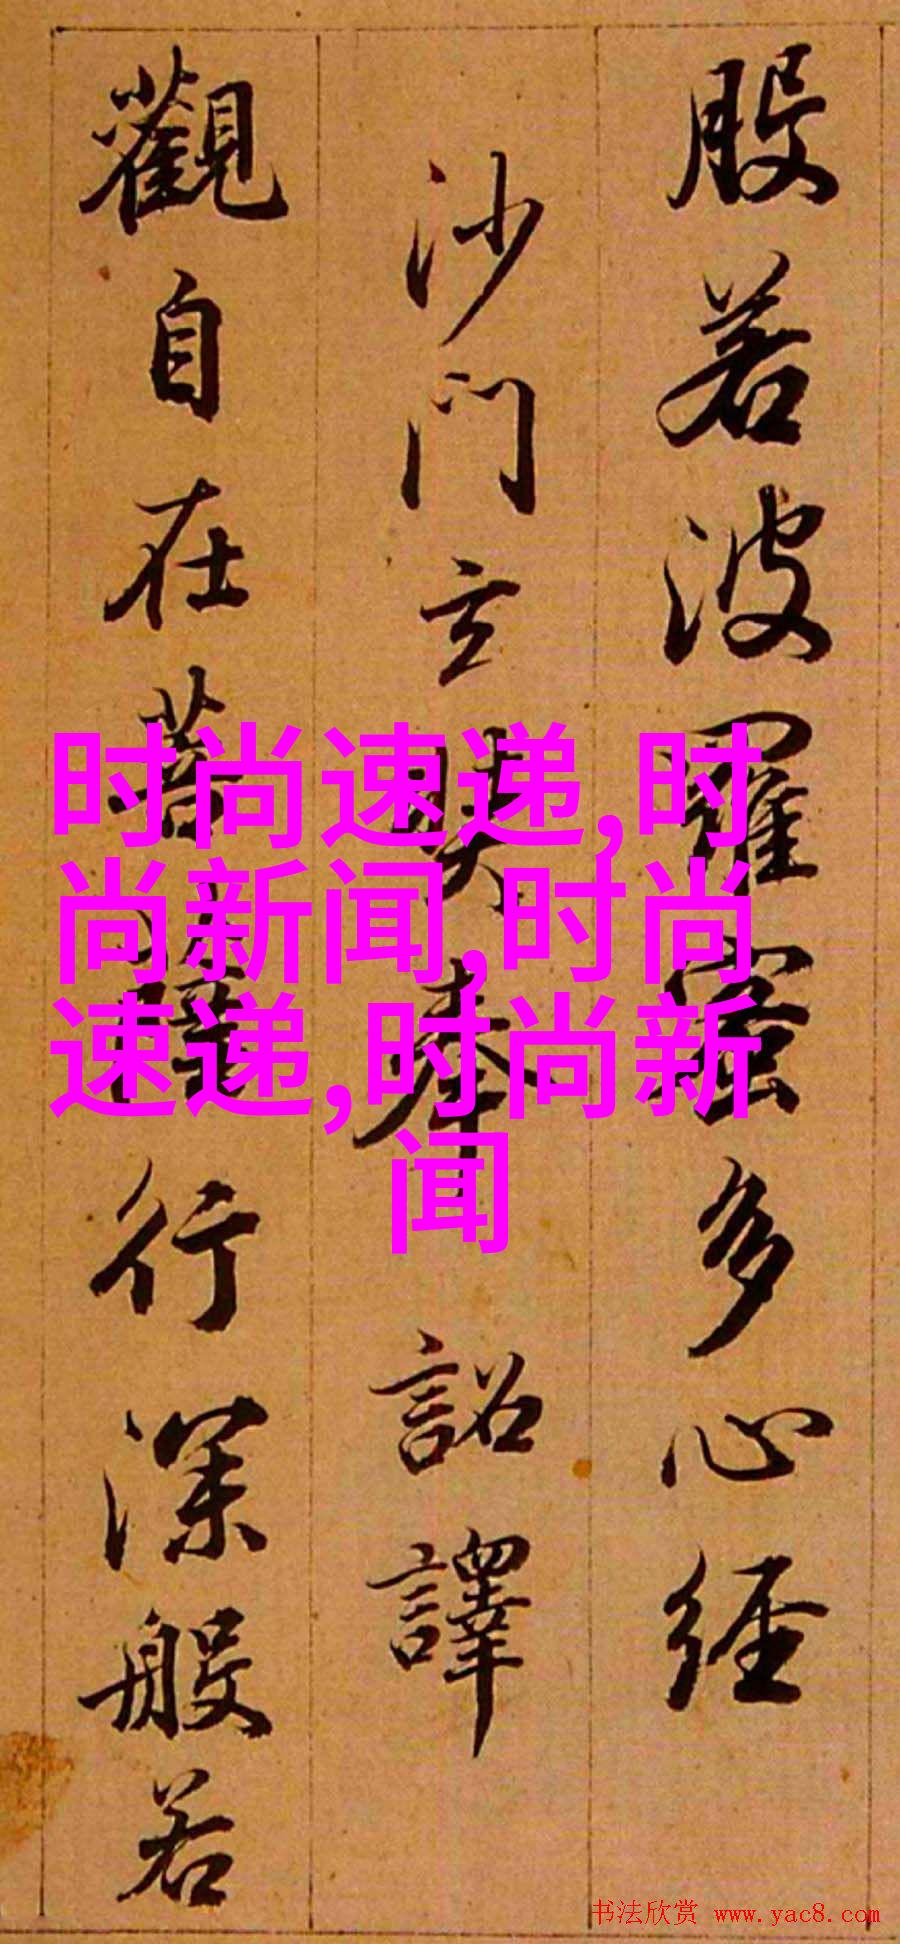 般若波羅蜜多心經
沙門玄奘奉 詔譯
觀自在菩薩行深般若
时尚速递,时
尚新闻,时尚
速递,时尚新
闻
书法欣赏 www.yac8.com